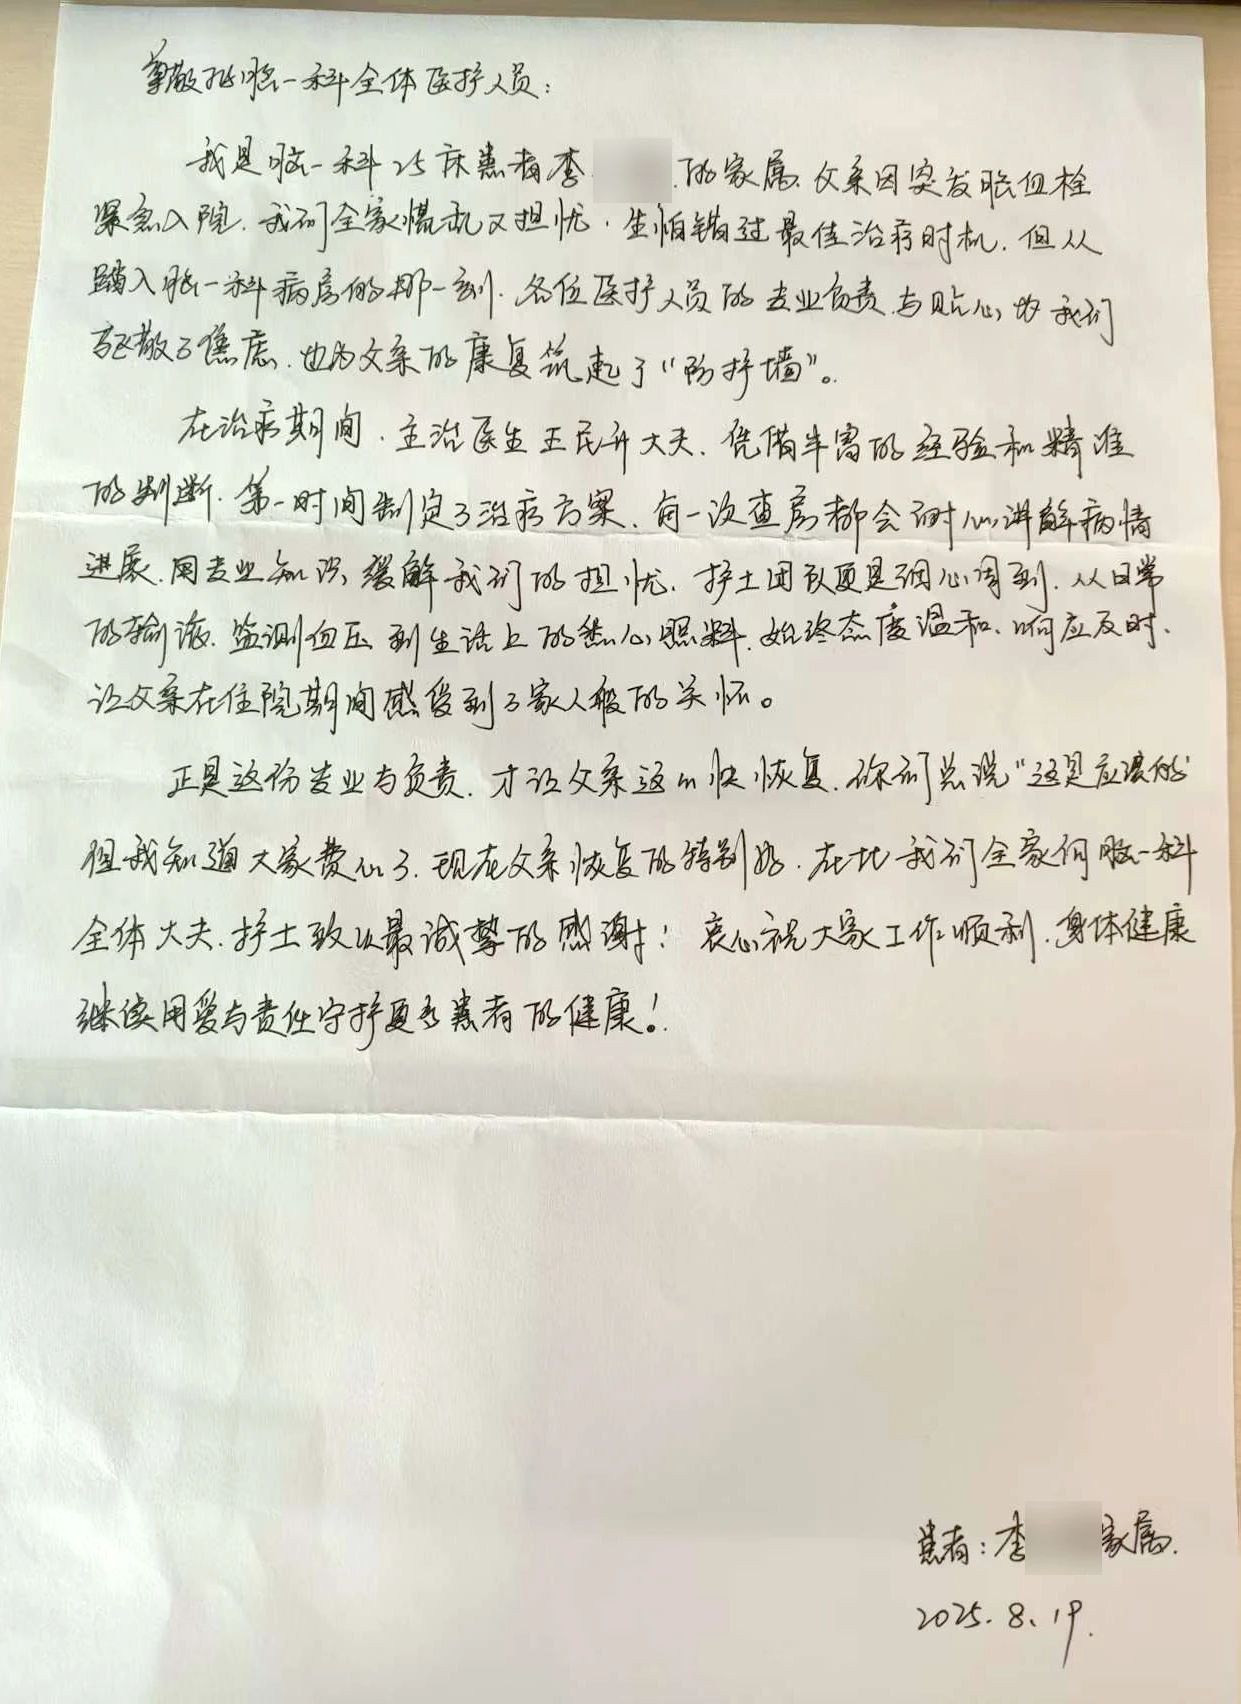 尊敬的脑一科全体医护人员：
我是脑一科25床患者李 的家属.父亲因突发脑血栓
紧急入院.我们全家慌乱又担忧.生怕错过最佳治疗时机.但从
踏入脑一科病房的那一刻.各位医护人员的专业负责与贴心为我们
驱散了焦虑.也为父亲的康复筑起了“防护墙”。
在治疗期间.主治医生王民升大夫.凭借丰富的经验和精准
的判断.第一时间制定了治疗方案.每一次查房都会耐心讲解病情
进展.用专业知识缓解我们的担忧.护士团队更是细心周到.从日常
的输液.监测血压到生活上的悉心照料.始终态度温和.响应及时.
让父亲在住院期间感受到了家人般的关怀。
正是这份专业与负责.才让父亲这么快恢复.你们总说“这是应该的”
但我知道大家费心了.现在父亲恢复的特别好.在此我们全家向脑一科
全体大夫.护士致以最诚挚的感谢！衷心祝大家工作顺利.身体健康
继续用爱与责任守护更多患者的健康！
患者：李 家属.
2025.8.19.